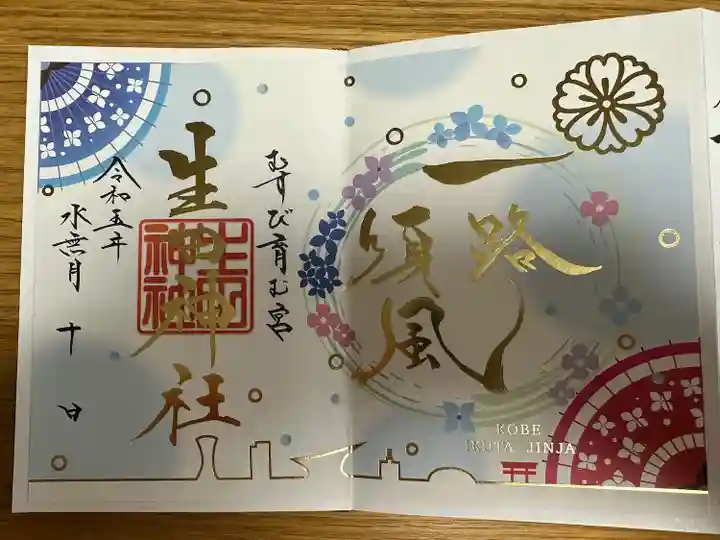 一路
順風
むすび育む宮
生田神社
生田
神社
令和五年
水無月 十 日
KOBE
IKUTA JINJA